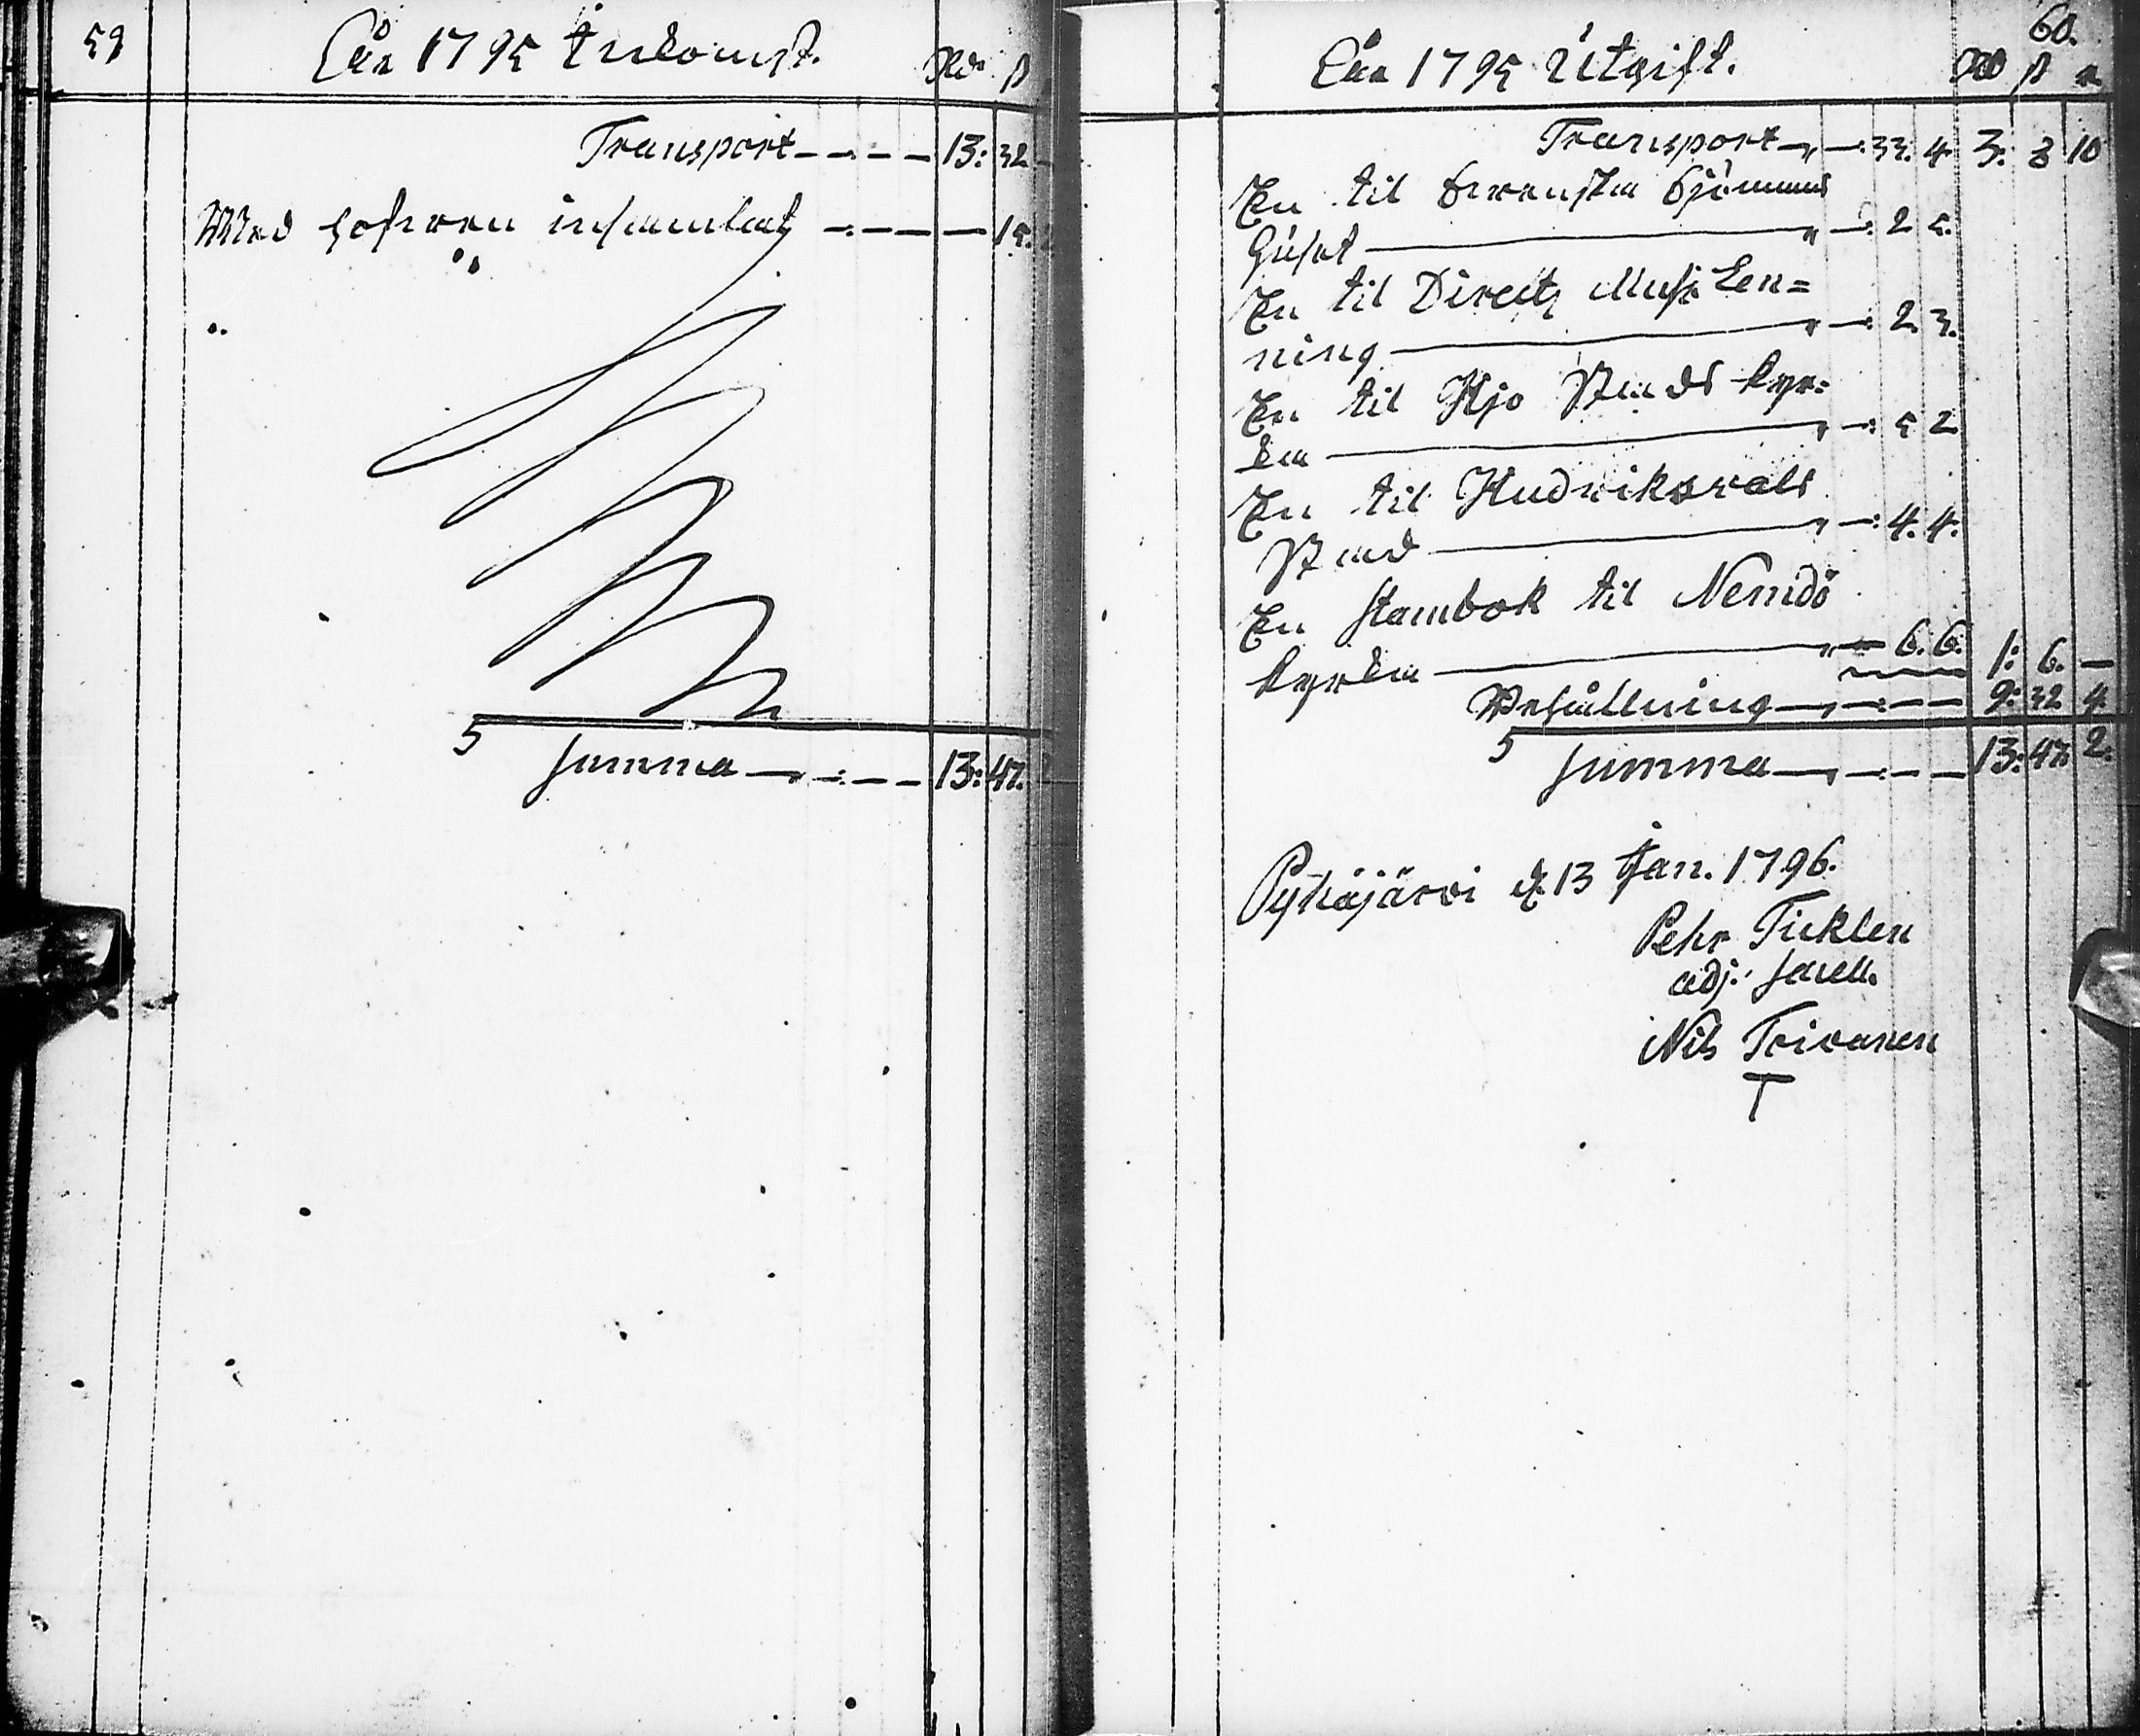 59
Åhr 1795 Inkomst. Rdr ß
Transport 13: 32
Med Håfwen insamlat 15.
Summa 13: 47.
60.
Åhr 1795 Utgift. Rdr ß r
Transport 33. 4 3: 8 10
En til Swenska Sjömans
Huset 2 5.
En til Direct
ning 2. 3.
En til Hjo Stads kyr=
ka 5 2
En til Hudwikswals
Stad 4. 4.
En Stambok til Nemdö
kyrka 6. 6. 1: 6. —
Behållning 9: 32 4
Summa 13: 47. 2.
Pyhäjärvi d. 13 Jan. 1796.
Pehr Ticklen
adj. sacell.
Nils Toivanen
T